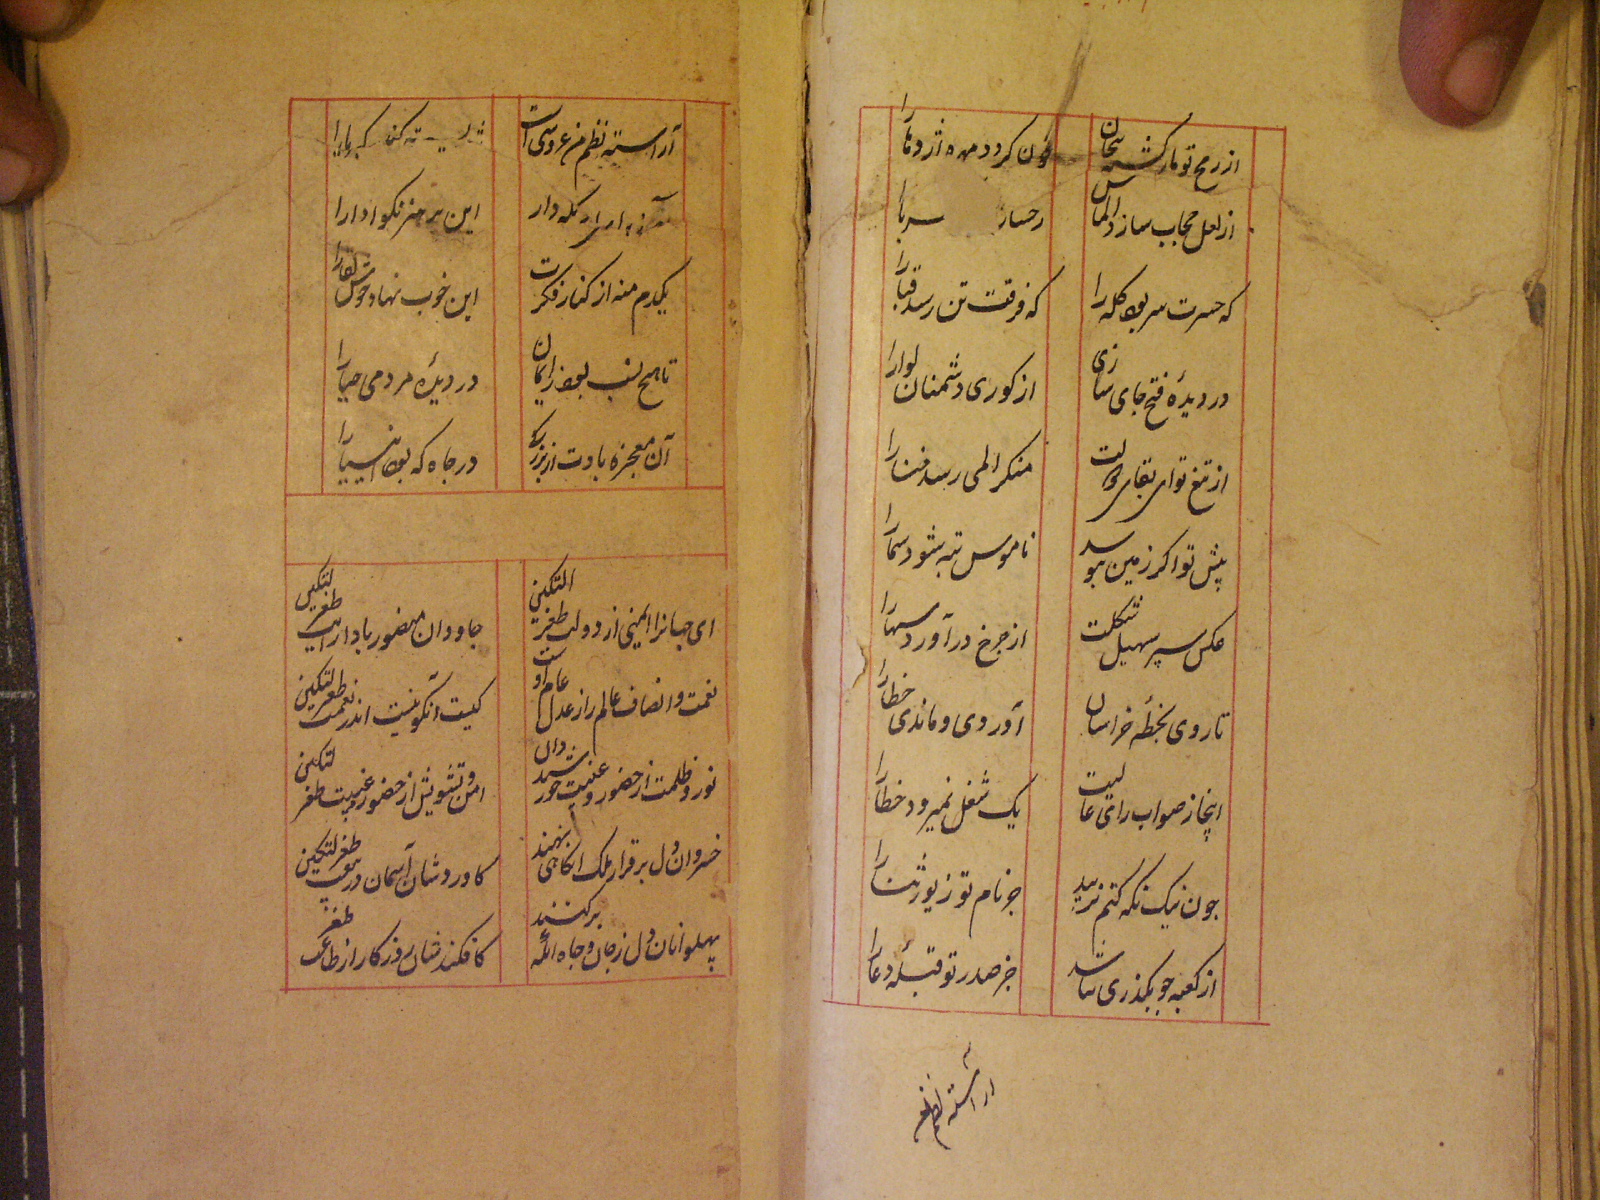 از رمح تو مار گشته پیچان
چون کردد مهره اژدها را
از لعل حجاب سازد الماس
که حسرت سر بود کله را
که فرقت تن رسد قبا را
در دیدهٔ فتح جای سازی
از کوری دشمنان لوا را
از تیغ تو ای بقای دولت
منکر المی رسد فنا را
پیش تو اگر زمین ببوسد
ناموس تبه شود سما را
عکس سپر سهیل شکلت
از چرخ در آورد سها را
تا روی بخطهٔ خراسان
آوردی و ماندی خطا را
اینجا ز صواب رای عالیت
یک شغل نمیرود خطا را
چون نیک نگه کنم نزیبد
جز نام تو زیور ثنا را
از کعبه چو بگذری نباشد
جز صدر تو قبلهٔ دعا را
آراسته نظم
آراسته نظم من عروسی است
کبریا را
این سر هنر نکو ادا را
یکدم منه از کنار فکرت
این خوب نهاد خوش لقا را
تا هیچ نسب بود ز ایمان
در دیدهٔ مردمی حیا را
آن معجزه بادت از بزرگی
در جاه که بود انبیا را
ای جهانرا ایمنی از دولت طغرلتکین
جاودان منصور بادا رایت طغرلتکین
نعمت و انصاف عالم را ز عدل عام اوست
کیست آنکو نیست اندر نعمت طغرلتکین
نور و ظلمت از حضور و غیبت خورشید دان
امن و تشویش از حضور و غیبت طغرلتکین
خسروان دل بر قرار ملک آنگاهی نهند
کاورد شان آسمان در بیعت طغرلتکین
پهلوانان دل ز جان و جاه آنگه برکنند
کافکند شان روزگار از طاعت طغر